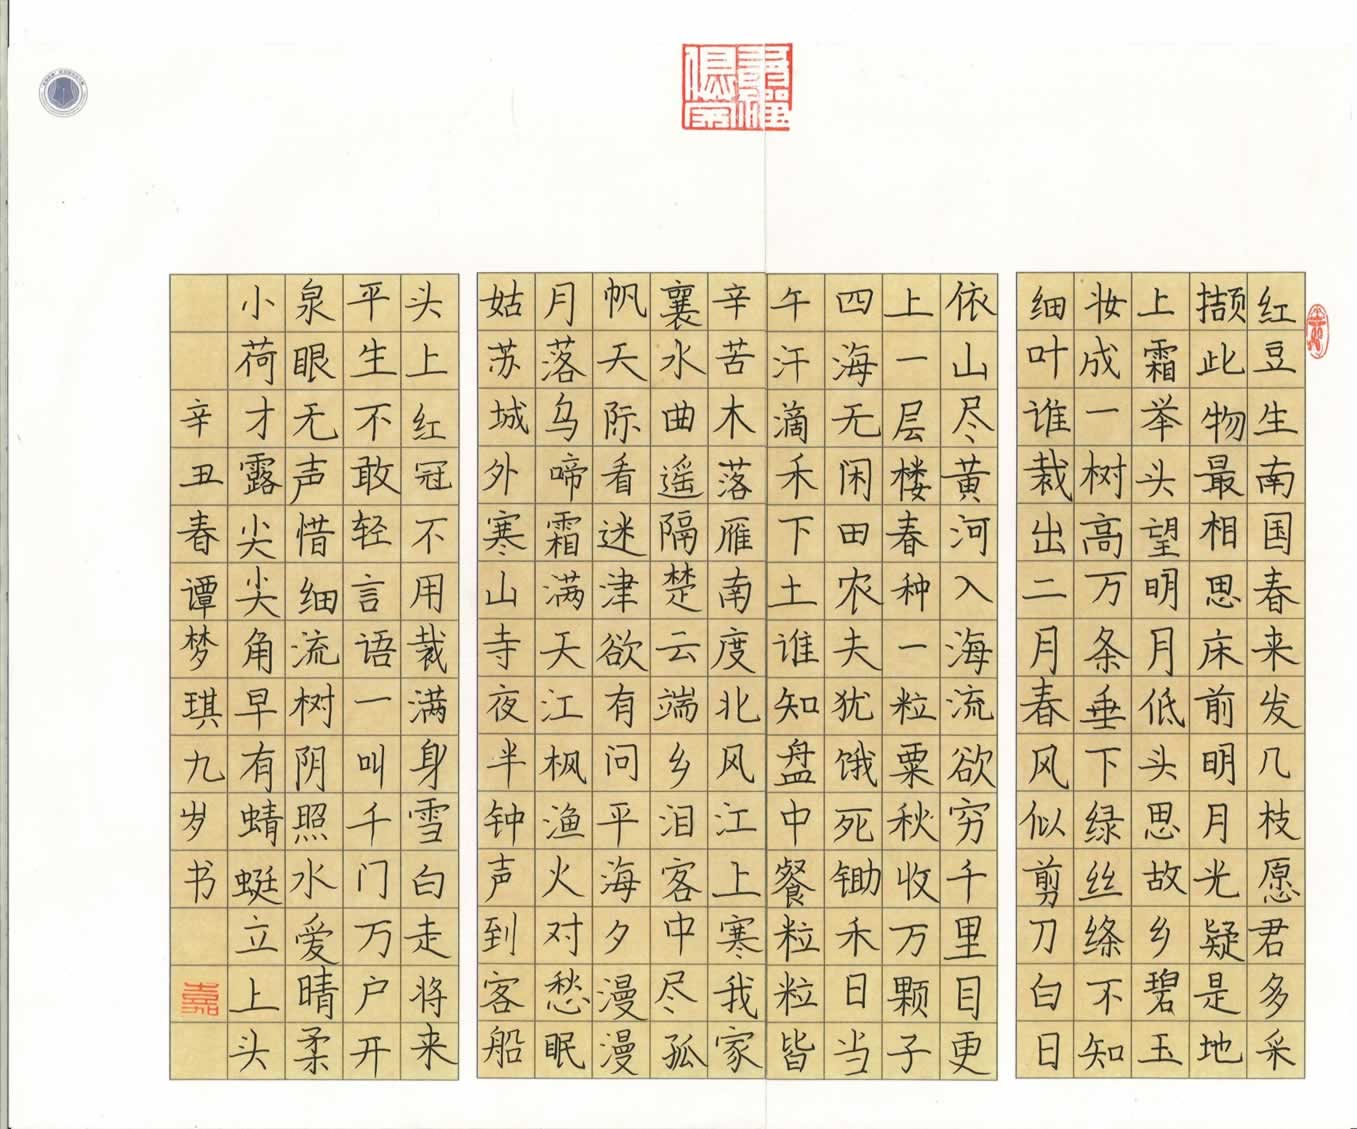 红豆生南国春来发几枝愿君多采
撷此物最相思床前明月光疑是地
上霜举头望明月低头思故乡碧玉
妆成一树高万条垂下绿丝绦不知
细叶谁裁出二月春风似剪刀白日
依山尽黄河入海流欲穷千里目更
上一层楼春种一粒粟秋收万颗子
四海无闲田农夫犹饿死锄禾日当
午汗滴禾下土谁知盘中餐粒粒皆
辛苦木落雁南度北风江上寒我家
襄水曲遥隔楚云端乡泪客中尽孤
帆天际看迷津欲有问平海夕漫漫
月落乌啼霜满天江枫渔火对愁眠
姑苏城外寒山寺夜半钟声到客船
头上红冠不用裁满身雪白走将来
平生不敢轻言语一叫千门万户开
泉眼无声惜细流树阴照水爱晴柔
小荷才露尖尖角早有蜻蜓立上头
辛丑春谭梦琪九岁书